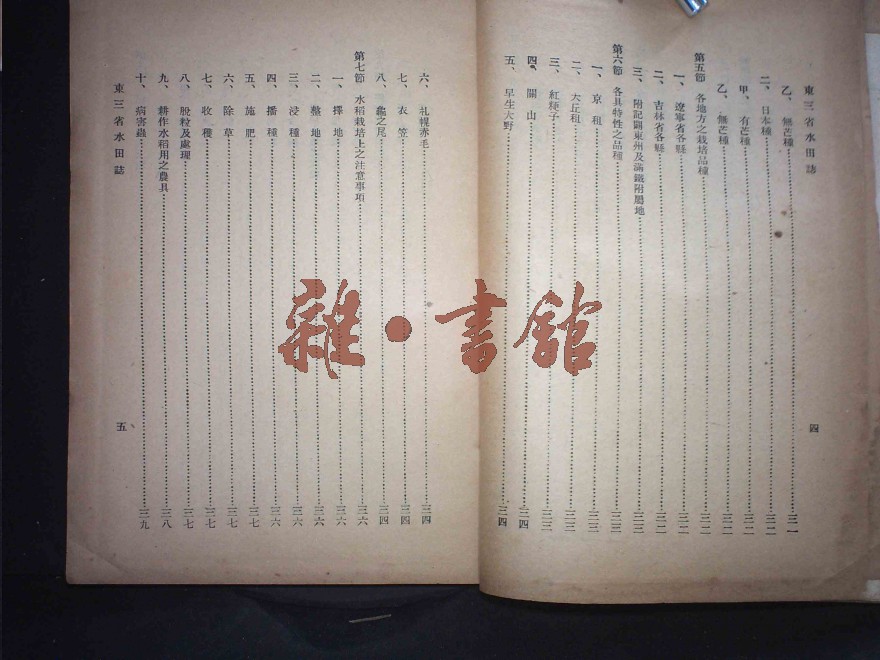 東三省水田誌
乙、無芒種 三一
二、日本種 三二
甲、有芒種 三二
乙、無芒種 三二
第五節 各地方之栽培品種 三二
一、遼寧省各縣 三二
二、吉林省各縣 三二
三、附記關東州及滿鐵附屬地 三三
第六節 各具特性之品種 三三
一、京租 三三
二、大丘租 三三
三、紅稉子 三三
四、關山 三四
五、早生大野 三四
四
六、札幌赤毛 三四
七、衣笠 三四
八、龜之尾 三四
第七節 水稻栽培上之注意事項 三六
一、擇地 三六
二、整地 三六
三、浸種 三六
四、播種 三六
五、施肥 三七
六、除草 三七
七、收穫 三七
八、脫粒及處理 三七
九、耕作水稻用之農具 三八
十、病害蟲 三九
東三省水田誌
五
雜·書館